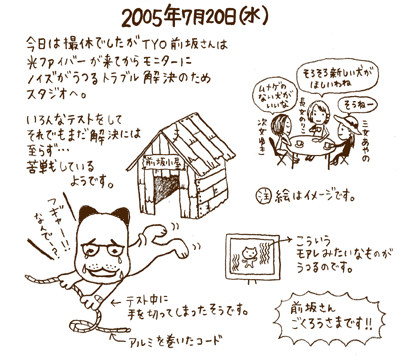 2005年7月20日(水)
今日は撮休でしたがTYO前坂さんは
光ファイバーが来てからモニターに
ノイズがうつるトラブル解決のため
スタジオへ。
いろんなテストをして
それでもまだ解決には
至らず…
苦戦もしている
ようです。
前坂小屋
ムナゲの
ない犬が
いいな
そろそろ新しい犬が
ほしいわね
そうねー
次女ゆき
長女のりこ
三女あやの
注 絵はイメージです。
フギャー!!
なんでー?
こういう
モアレみたいなものが
うつるのです。
テスト中に
手を切ってしまったそうです。
アルミを巻いたコード
前坂さん
ごくろうさまです!!